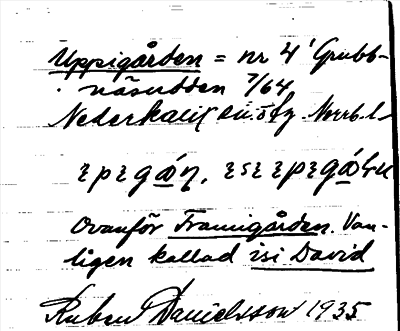 Uppigården = nr 4 Grubb-
näsudden 7/64
Nederkalix sn. Norrb. l.
Ovanför Framigården. Van-
ligen kallad isi David
Ruben Danielsson 1935